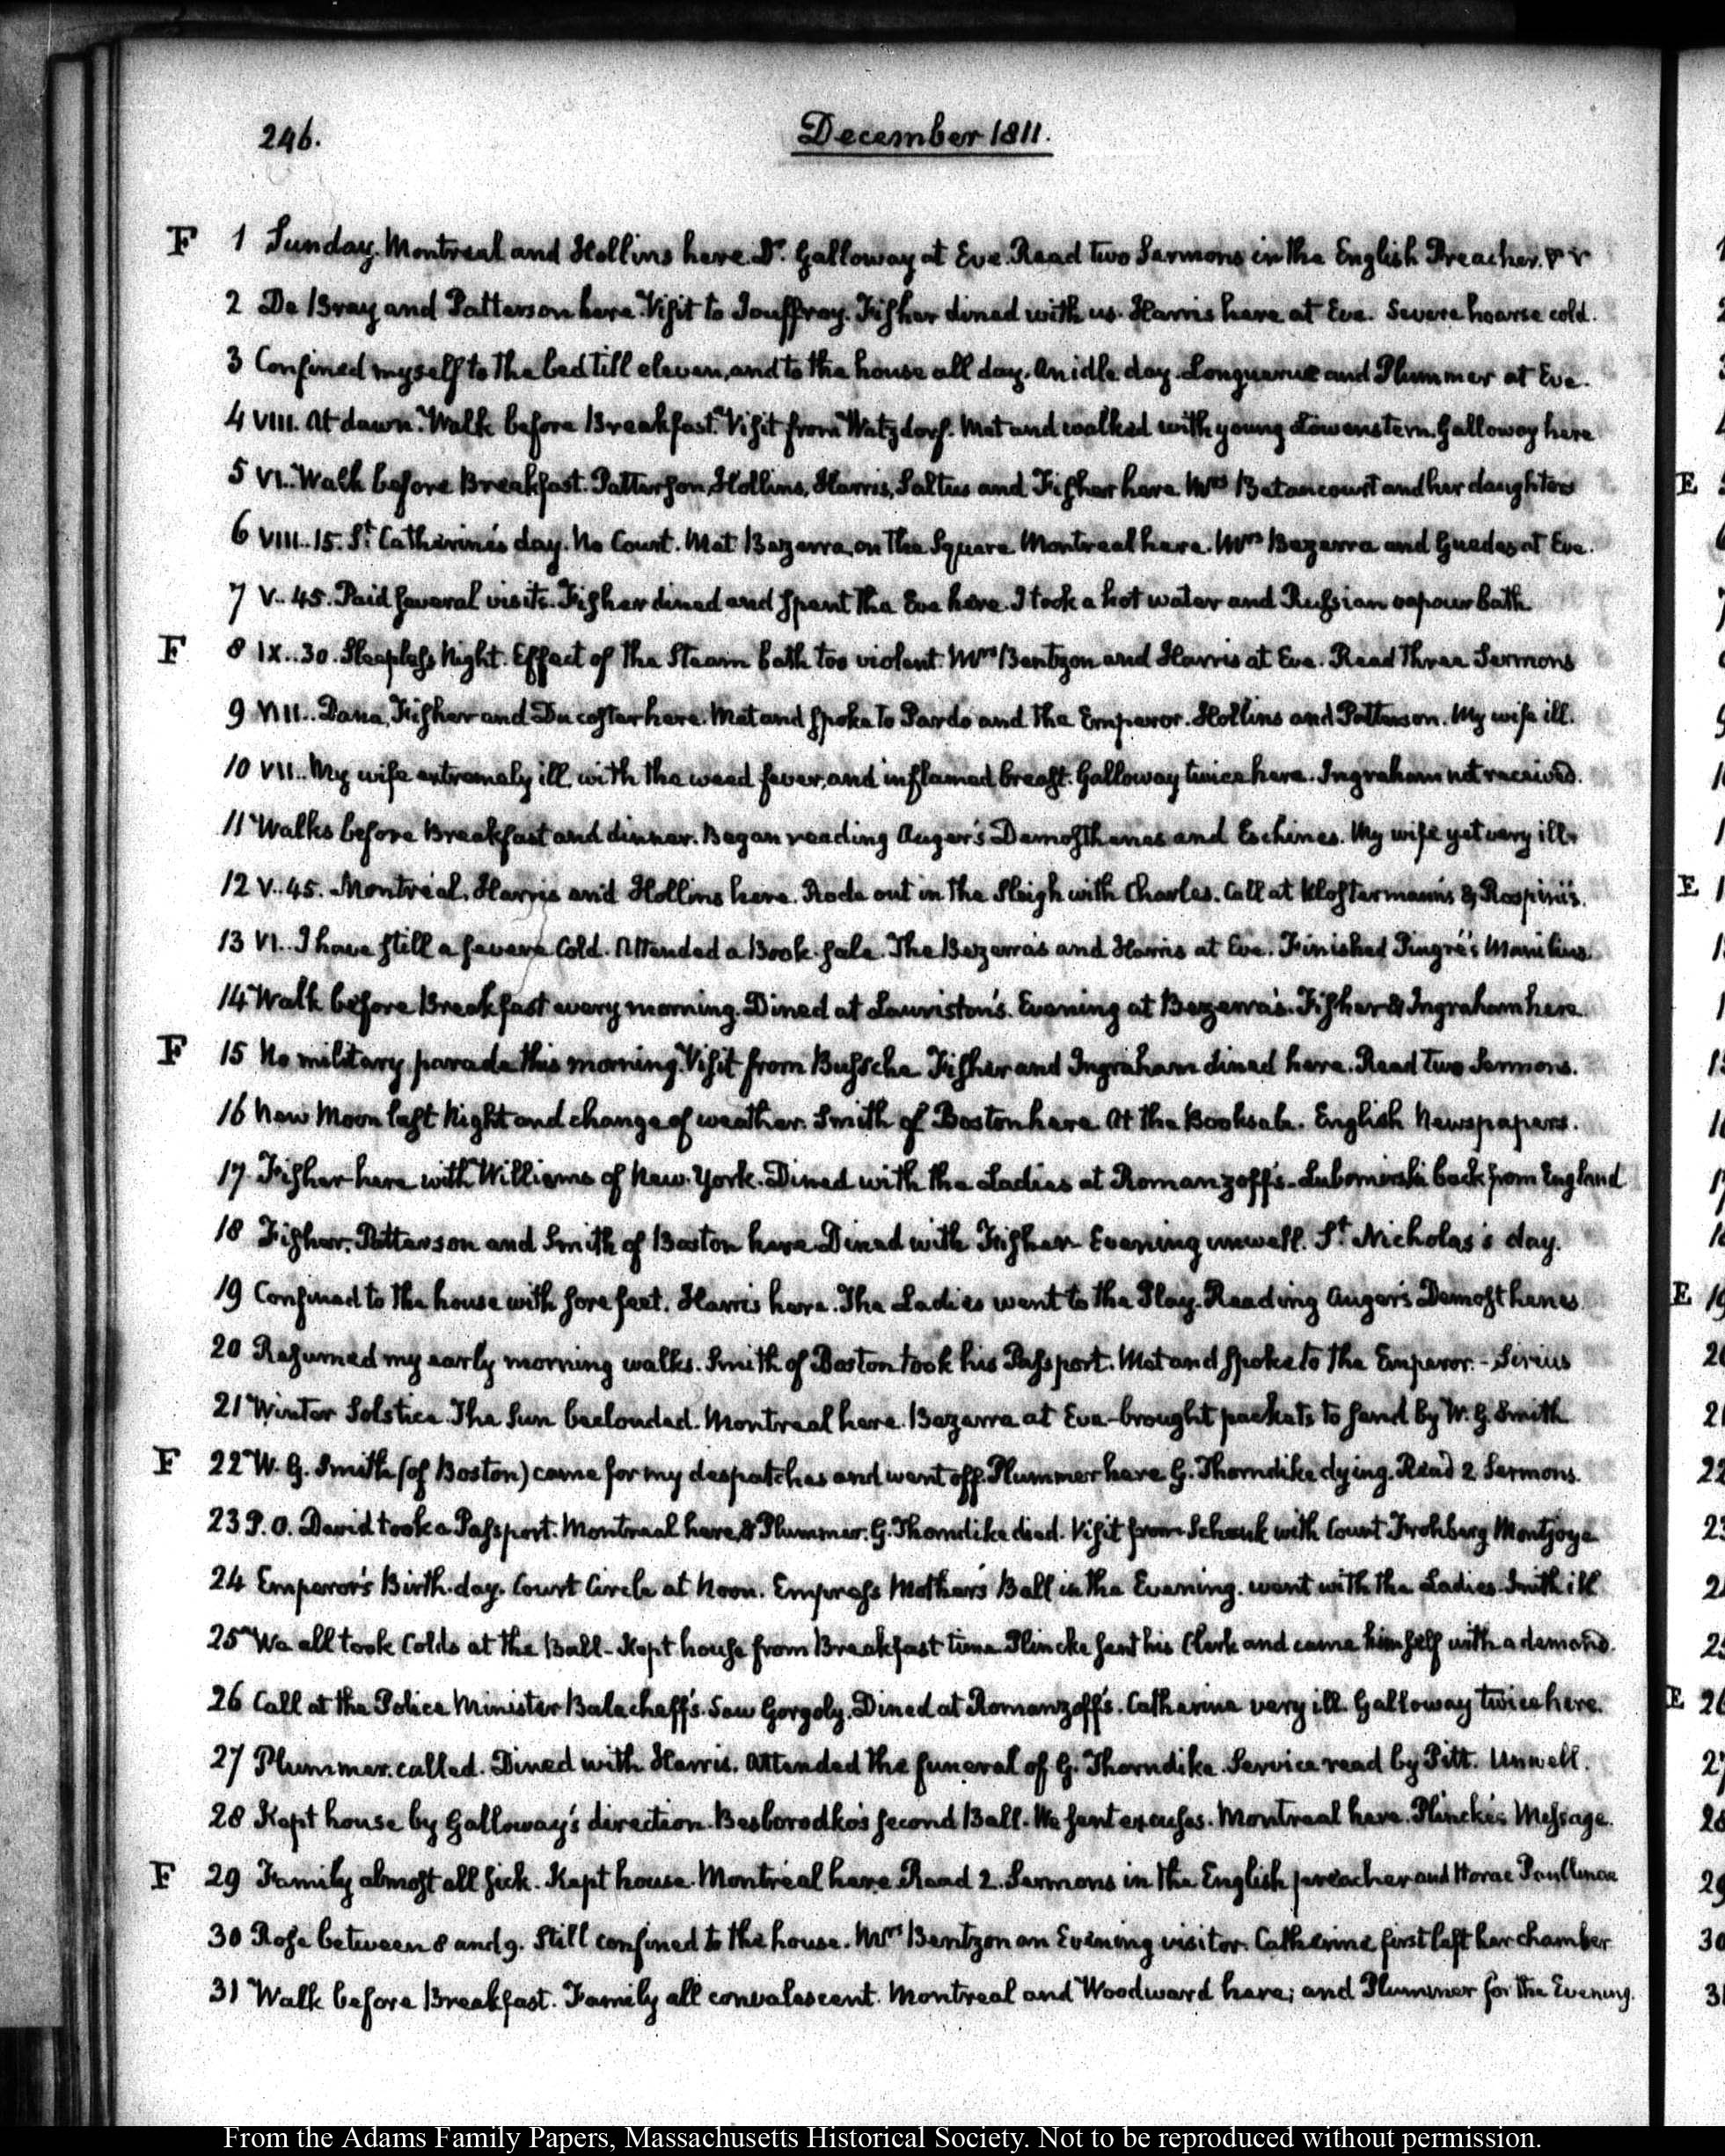 246.
December 1811.
F 1 Sunday. Montreal and Hollins here. Dr. Galloway at Eve. Read two Sermons in the English Preacher.
2 De Bray and Patterson here. Visit to Jouffroy. Fisher dined with us. Harris here at Eve. Severe hoarse cold.
3 Confined myself to the bed till eleven, and to the house all day. An idle day. Longuerue and Plummer at Eve.
4 VIII. At dawn. Walk before Breakfast. Visit from Watzdorf. Met and walked with young Löwenstern. Galloway here
5 VI. Walk before Breakfast. Patterson, Hollins, Harris, Saltus and Fisher here. Mrs Betancourt and her daughters
6 VIII..15. St. Catherine's day. No Court. Met Bezerra, on the Square. Montreal here. Mrs Bezerra and Guedes at Eve.
7 V..45. Paid several visits. Fisher dined and spent the Eve here. I took a hot water and Russian vapour bath
F 8 IX..30. Sleepless Night. Effect of the Steam bath too violent. Mrs Bentzon and Harris at Eve. Read three Sermons
9 VIII.. Dana, Fisher and Ducoster here. Met and spoke to Pardo and the Emperor. Hollins and Patterson. My wife ill.
10 VII.. My wife extremely ill, with the weed fever, and inflamed breast. Galloway twice here. Ingraham not received.
11 Walks before Breakfast and dinner. Began reading Auger's Demosthenes and Eschines. My wife yet very ill.
12 V..45. Montréal, Harris and Hollins here. Rode out in the Sleigh with Charles. Call at Klostermann's & Rospini's.
13 VI.. I have still a severe Cold. Attended a Book-sale. The Bezerra's and Harris at Eve. Finished Pingré's Manilius.
14 Walk before Breakfast every morning. Dined at Lauriston's. Evening at Bezerra's. Fisher & Ingraham here.
F 15 No military parade this morning. Visit from Bussche. Fisher and Ingraham dined here. Read two Sermons.
16 New Moon last Night and change of weather. Smith of Boston here. At the Booksale. English Newspapers.
17 Fisher here with Williams of New-York. Dined with the Ladies at Romanzoff's. Lubomirski back from England
18 Fisher, Patterson and Smith of Boston here. Dined with Fisher. Evening unwell. St Nicholas's day.
19 Confined to the house with sore feet. Harris here. The Ladies went to the Play. Reading Auger's Demosthenes
20 Resumed my early morning walks. Smith of Boston took his Passport. Met and spoke to the Emperor. - Sirius
21 Winter Solstice. The Sun beclouded. Montreal here. Bezerra at Eve - brought packets to send by W. G. Smith
F 22 W. G. Smith (of Boston) came for my despatches and went off. Plummer here G. Thorndike dying. Read 2 Sermons.
23 P. O. David took a Passport. Montreal here, & Plummer. G. Thorndike died. Visit from Schenk with Count Frohberg Montjoye
24 Emperor's Birth-day. Court Circle at Noon. Empress Mother's Ball in the Evening. went with the Ladies. Smith ill
25 We all took Colds at the Ball - Kept house from Breakfast time. Plincke sent his Clerk and came himself with a demand.
26 Call at the Police Minister Balacheff's. Saw Gorgoly. Dined at Romanzoff's. Catherine very ill. Galloway twice here.
27 Plummer called. Dined with Harris. Attended the funeral of G. Thorndike. Service read by Pitt. Unwell.
28 Kept house by Galloway's direction. Besborodko's second Ball. We sent excuses. Montreal here. Plincke's Message.
F 29 Family almost all sick. Kept house. Montréal here. Read 2. Sermons in the English preacher and Horae Paullinae
30 Rose between 8 and 9. Still confined to the house. Mrs Bentzon an Evening visitor. Catherine first left her chamber
31 Walk before Breakfast. Family all convalescent. Montreal and Woodward here; and Plummer for the Evening.
From the Adams Family Papers, Massachusetts Historical Society. Not to be reproduced without permission.